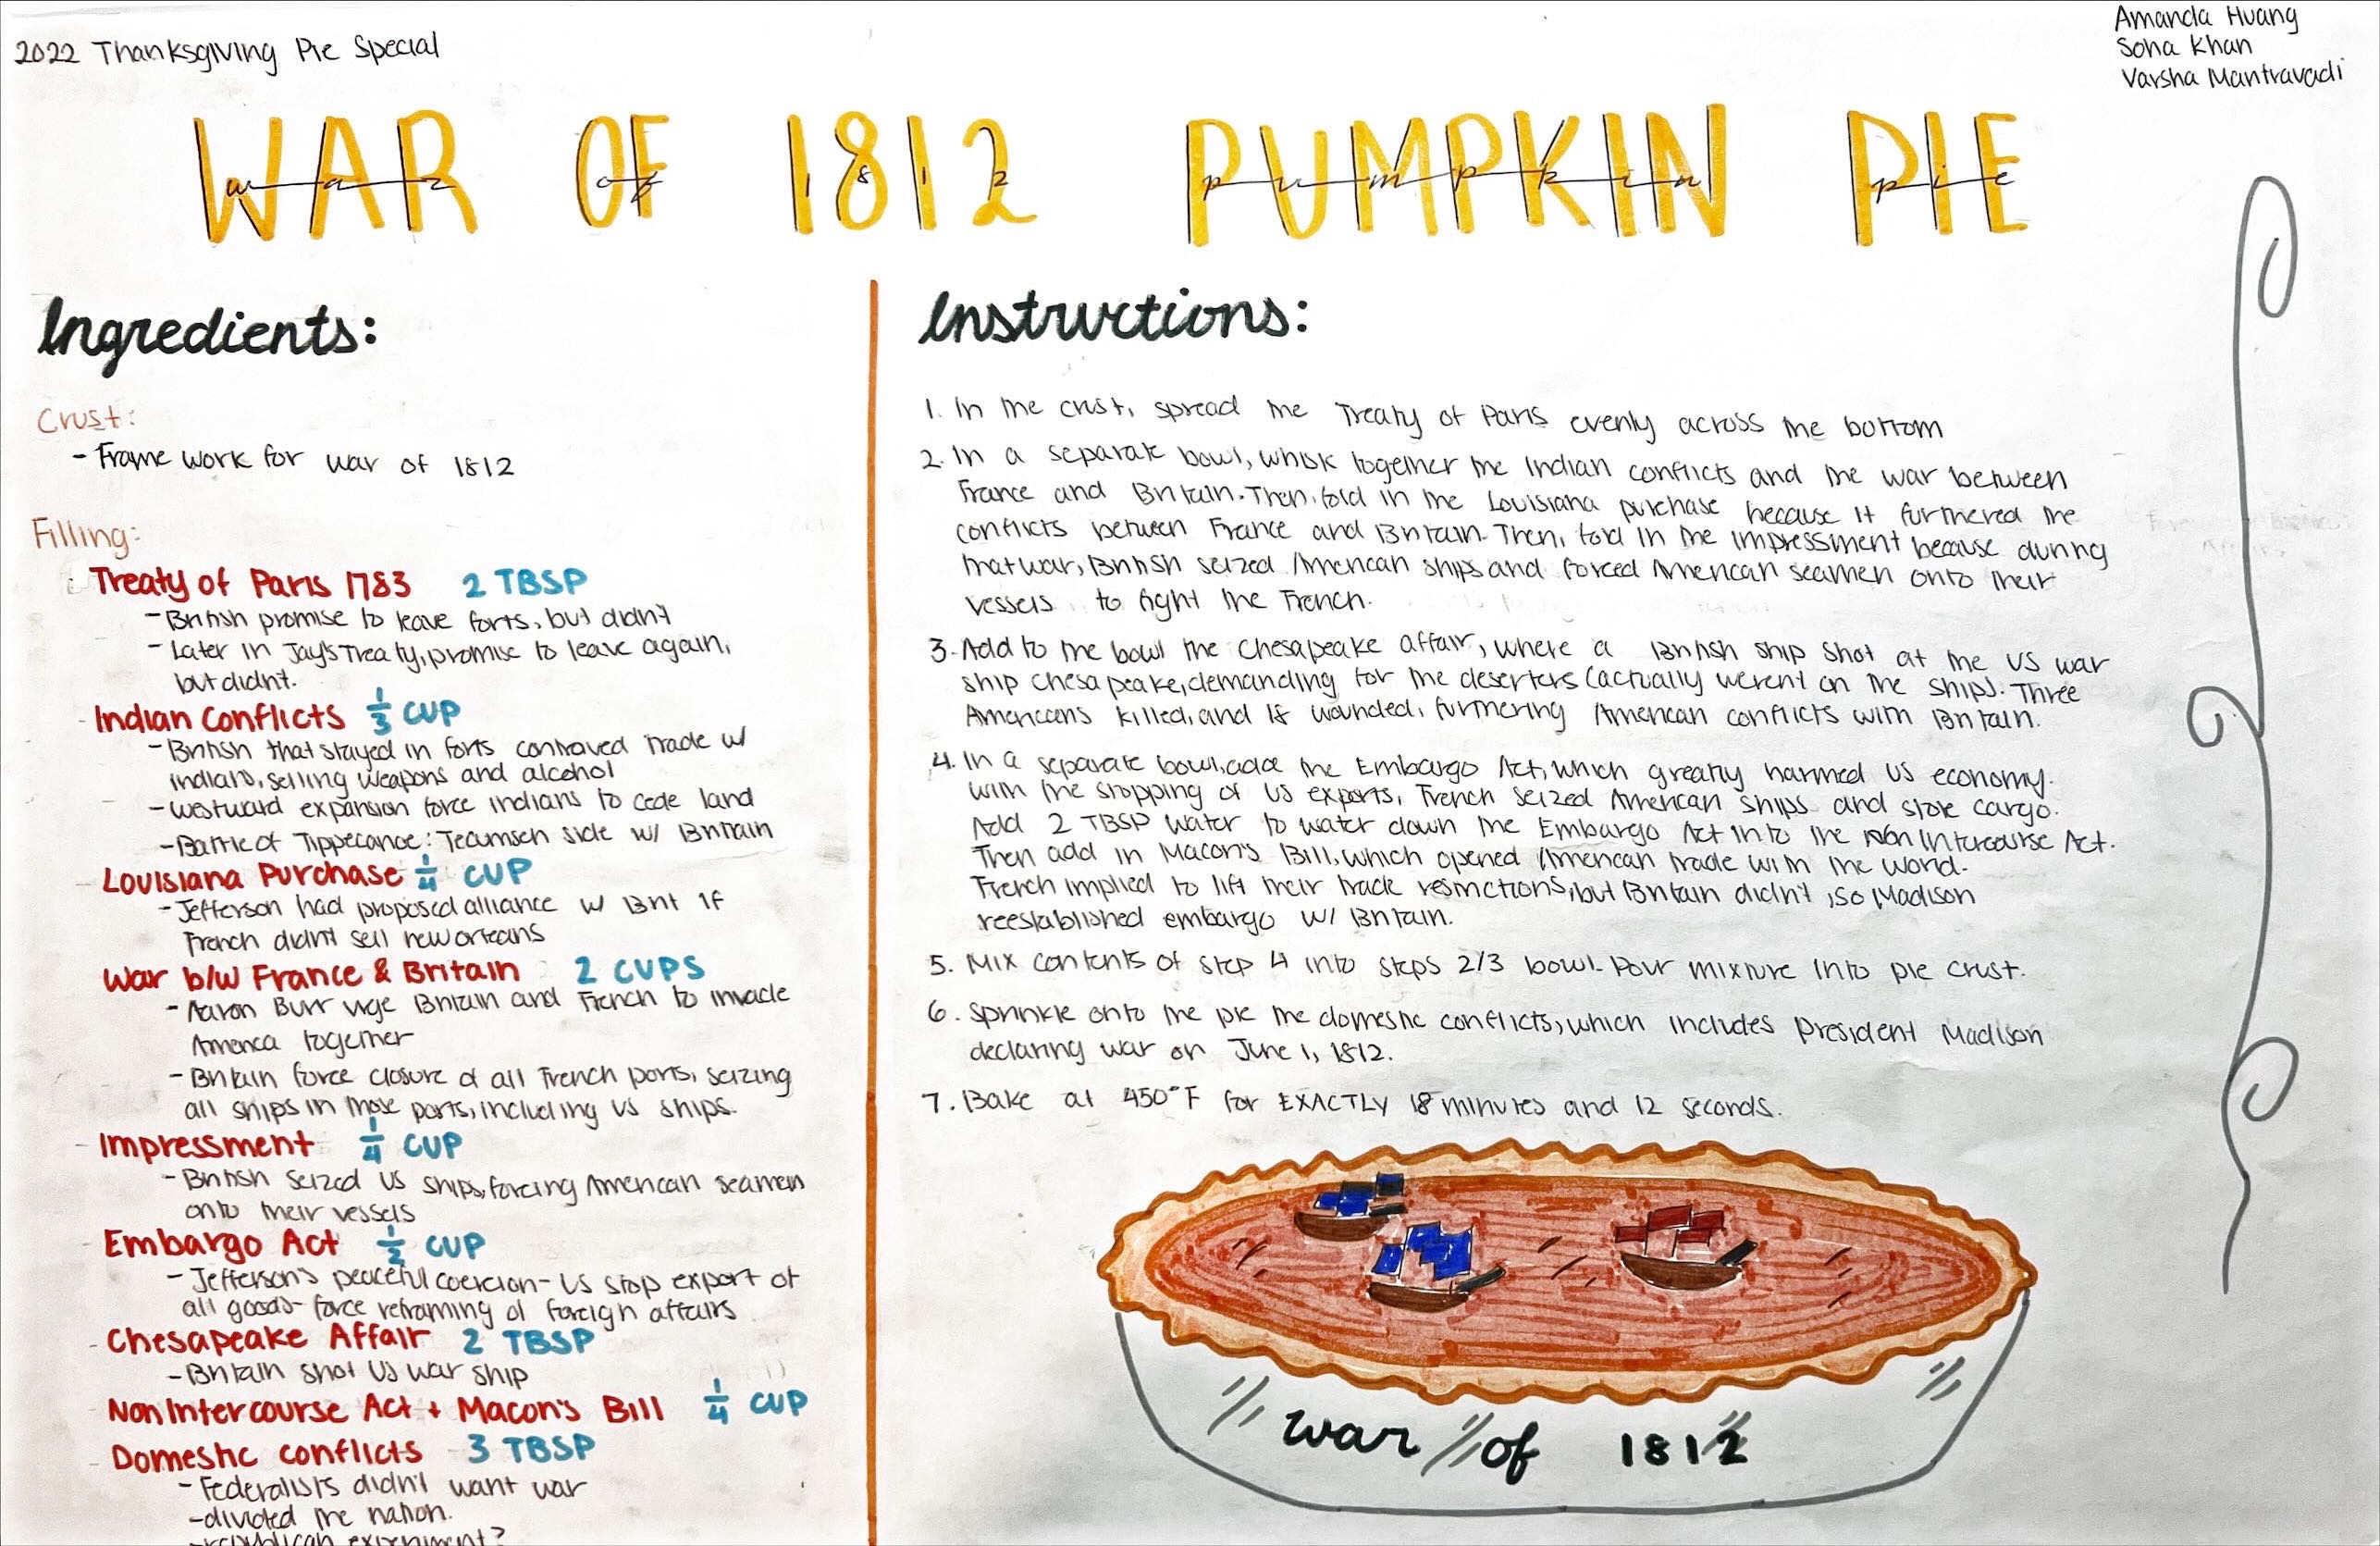 2022 Thanksgiving Pie Special
Amanda Huang
Soha Khan
Varsha Mantravadi
WAR OF 1812 PUMPKIN PIE
war of 1812 pumpkin pie
Ingredients:
Crust:
- Frame work for war of 1812
Filling:
Treaty of Paris 1783 2 TBSP
- British promise to leave forts, but didn't
- Later in Jay's Treaty, promise to leave again,
but didn't.
- Indian Conflicts 1/3 CUP
- British that stayed in forts continued trade w/
indians, selling weapons and alcohol
- westward expansion force indians to cede land
- Battle of Tippecanoe: Tecumseh side w/ Britain
- Louisiana Purchase 1/4 CUP
- Jefferson had proposed alliance w/ Brit if
French didn't sell new orleans
War b/w France & Britain 2 CUPS
- Aaron Burr urge Britain and French to invade
America together
- Britain force closure of all French ports, seizing
all ships in those ports, including US ships.
- Impressment 1/4 CUP
- British seized US ships, forcing American seamen
onto their vessels
- Embargo Act 1/2 CUP
- Jefferson's peaceful coercion - US stop export of
all goods - force reframing of foreign affairs
- Chesapeake Affair 2 TBSP
- Britain shot US war ship
- NonIntercourse Act + Macon's Bill 1/4 CUP
- Domestic conflicts 3 TBSP
- Federalists didn't want war
- divided the nation.
- republican experiment?
Instructions:
1. In the crust, spread the Treaty of Paris evenly across the bottom
2. In a separate bowl, whisk together the Indian conflicts and the war between
France and Britain. Then, fold in the Louisiana purchase because it furthered the
conflicts between France and Britain. Then, fold in the impressment because during
that war, British seized American ships and forced American seamen onto their
vessels to fight the French.
3. Add to the bowl the Chesapeake affair, where a British ship shot at the US war
ship Chesapeake, demanding for the deserters (actually weren't on the ships). Three
Americans killed, and 18 wounded, furthering American conflicts with Britain.
4. In a separate bowl, add the Embargo Act, which greatly harmed US economy.
With the stopping of US exports, French seized American ships and stole cargo.
Add 2 TBSP water to water down the Embargo Act into the Non Intercourse Act.
Then add in Macon's Bill, which opened American trade with the world.
French implied to lift their trade restrictions, but Britain didn't, so Madison
reestablished embargo w/ Britain.
5. Mix contents of step 4 into steps 2/3 bowl. Pour mixture into pie crust.
6. Sprinkle onto the pie the domestic conflicts, which includes President Madison
declaring war on June 1, 1812.
7. Bake at 450°F for EXACTLY 18 minutes and 12 seconds.
war of 1812